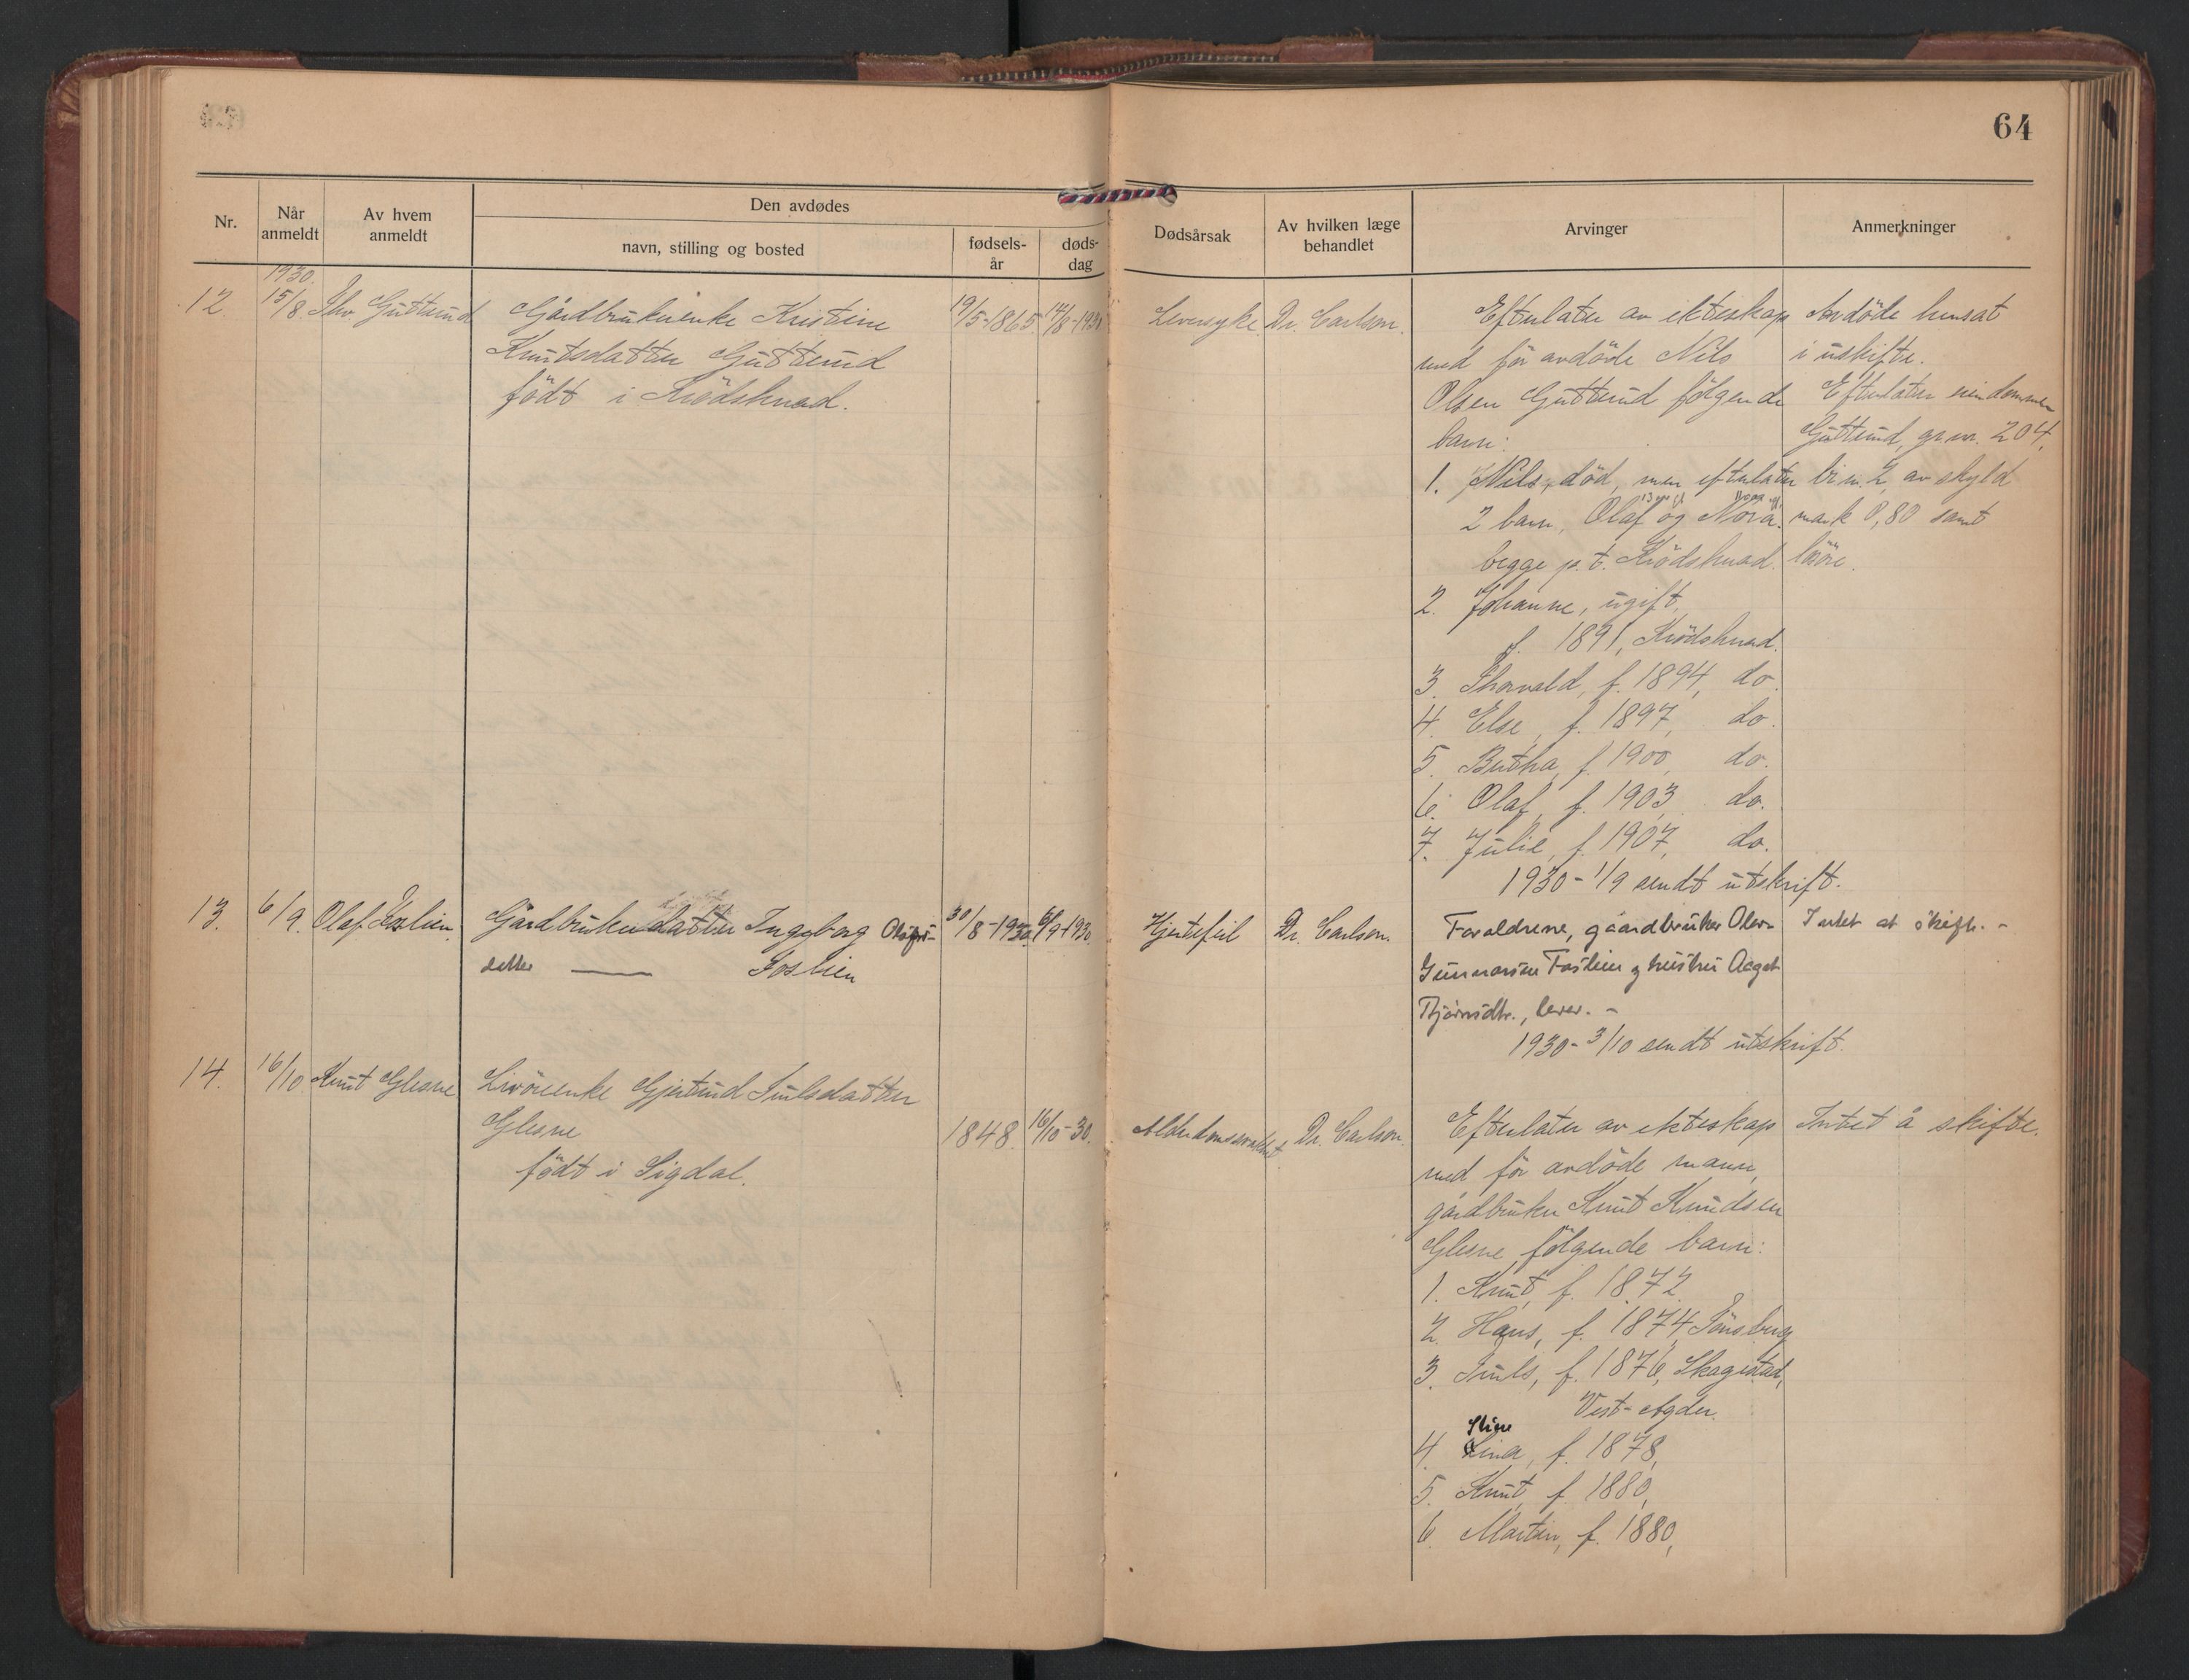 64
Nr.
Når anmeldt
Av hvem anmeldt
Den avdødes
navn, stilling og bosted
fødsels-år
døds-dag
Dødsårsak
Av hvilken læge behandlet
Arvinger
Anmerkninger
1930.
12. 15/8 Thv Gutterud
Gårdbrukerenke Kristine
Knutsdatter Gutterud
født i Krödsherad.
19/5-1865 14/8-1930
Leversyke Dr. Carlson.
Efterlater av ekteskap
med før avdöde Nils
Olsen Gutterud følgende
barn:
1. Nils, död, men efterlater
2 barn, Olaf og Nora.
begge p.t. Krödsherad.
2. Johanne, ugift,
f. 1891, Krödsherad.
3. Thorvald, f. 1894, do.
4. Else, f. 1897, do.
5. Bertha, f. 1900, do.
6. Olaf, f. 1903, do.
7. Julie, f. 1907, do.
1930 - 1/9 sendt utskrift.
Avdöde hensat
i uskifte.
Efterlater eiendommen
Gutterud, gr.nr. 204,
br.nr. 2, av skyld
mark 0,80 samt
lösöre.
13. 6/9. Olaf Foslien.
Gårdbrukerdatter Ingeborg
datter — Foslien
30/8-1930 6/9-1930.
Hjertefeil Dr. Carlson.
Foreldrene, gaardbruker Olav
Gunnarsen Foslien og hustru Aagot
Bjørnsdtr., lever. -
1930 - 3/10 sendt utskrift.
Intet at skifte. -
14. 16/10 Knut Glesne
Livörenke Gjertrud Trulsdatter
Glesne
født i Sigdal.
1848. 16/10-30.
Alderdomssvakhet Dr. Carlson.
Efterlater av ekteskap
med før avdöde mann,
gårdbruker Knut Knudsen
Glesne følgende barn:
1. Knut, f. 1872.
2. Hans, f. 1874, Tönsberg
3. Truls, f. 1876, Skagestad,
Vest-Agder.
4. Lina, f. 1878,
5. Knut, f. 1880,
6. Martin, f. 1880,
Intet å skifte.